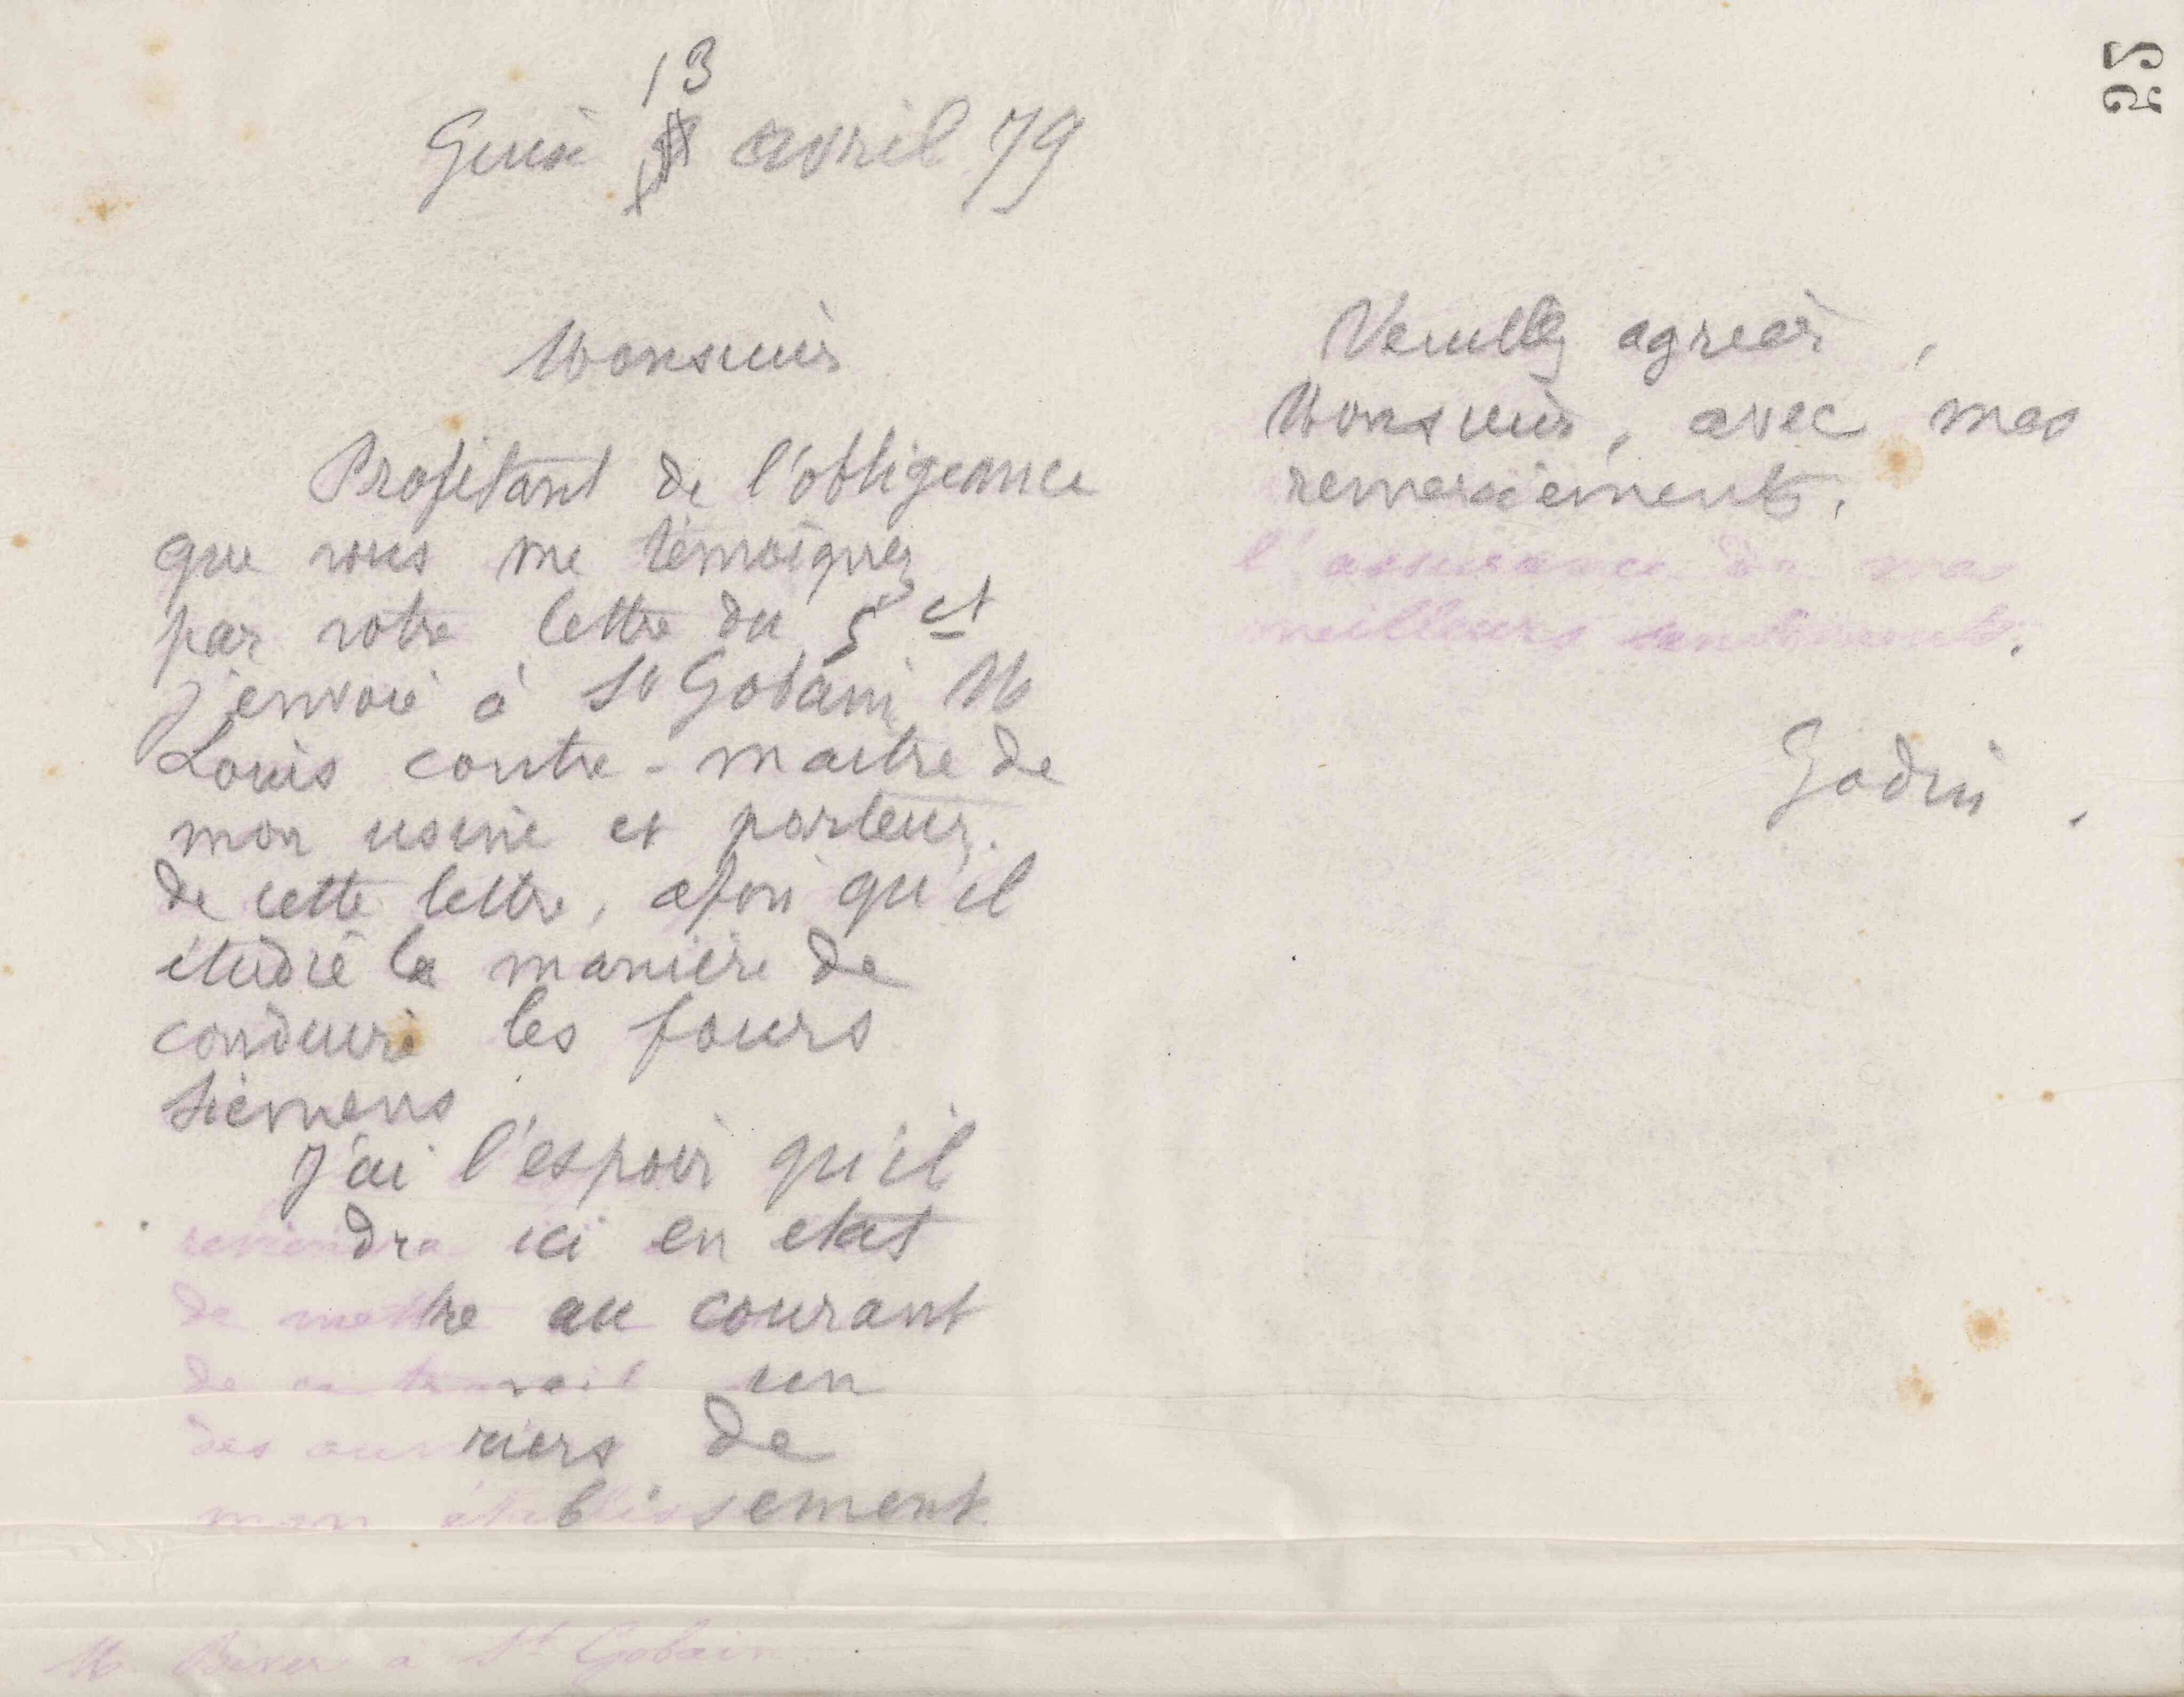 25
13
Guise avril 79
Monsieur
Profitant de l'obligeance
que vous me témoignez
par votre lettre du 5 ct
j'envoie à St Gobain M
Louis contre-maitre de
mon usine et porteur
de cette lettre, afin qu'il
étudie la manière de
conduire les fours
Siemens
J'ai l'espoir qu'il
reviendra ici en etat
de mettre au courant
de ce travail un
des ouvriers de
mon établissement
Veuillez agréer,
Monsieur, avec mes
remerciements,
l'assurance de mes
meilleurs sentiments.
Godin.
M. Biver a St Gobain